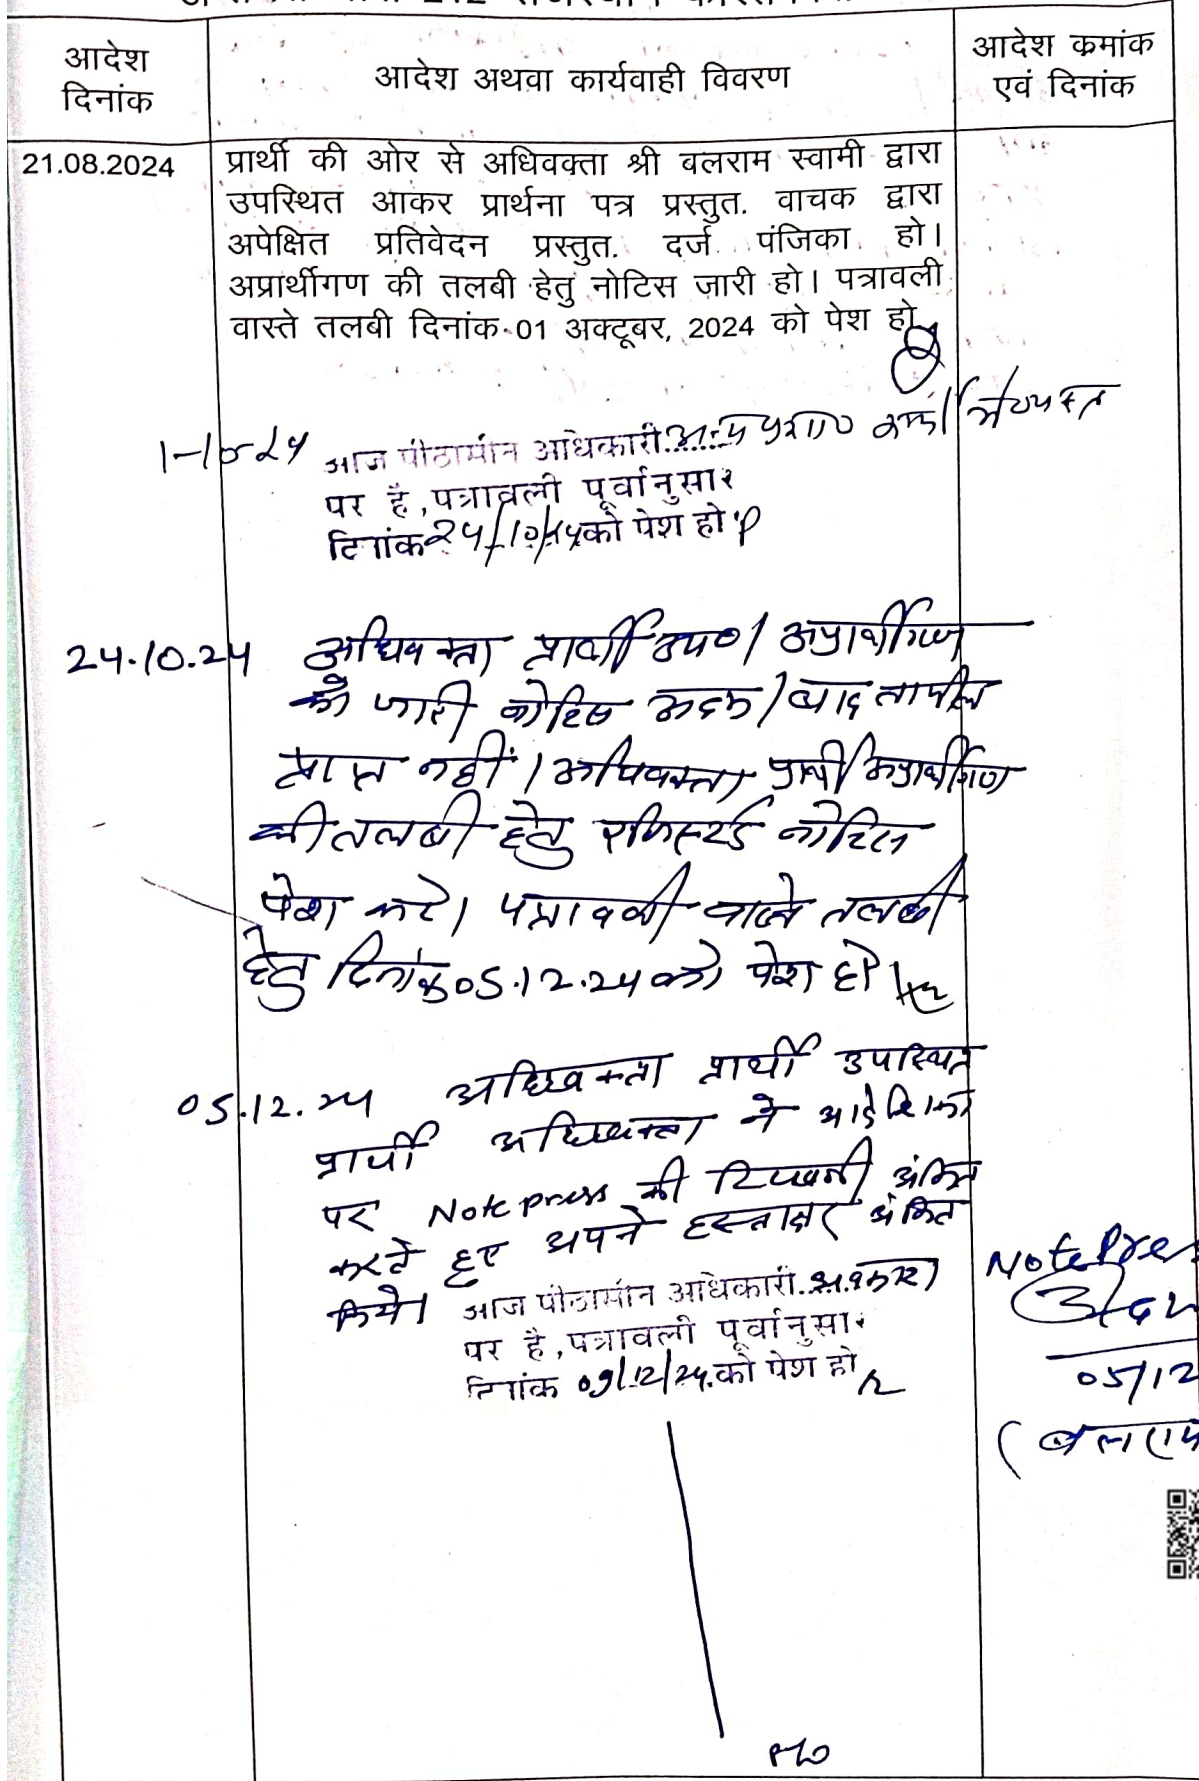 आदेश
दिनांक
आदेश अथवा कार्यवाही विवरण
आदेश क्रमांक
एवं दिनांक
21.08.2024
प्रार्थी की ओर से अधिवक्ता श्री बलराम स्वामी द्वारा
उपस्थित आकर प्रार्थना पत्र प्रस्तुत. वाचक द्वारा
अपेक्षित प्रतिवेदन प्रस्तुत. दर्ज पंजिका हो।
अप्रार्थीगण की तलबी हेतु नोटिस जारी हो। पत्रावली
वास्ते तलबी दिनांक 01 अक्टूबर, 2024 को पेश हो
1-10-24 आज पीठासीन अधिकारी
पर है, पत्रावली पूर्वानुसार
दिनांक 24/10/24 को पेश हो
24.10.24 अधिवक्ता प्रार्थी उप०। अप्रार्थीगण
को जारी नोटिस अदम/बाद तामील
प्राप्त नहीं। अधिवक्ता प्रार्थी अप्रार्थीगण
की तलबी हेतु रजिस्टर्ड नोटिस
पेश करे। पत्रावली वास्ते तलबी
हेतु दिनांक 05.12.24 को पेश हो
05.12.24 अधिवक्ता प्रार्थी उपस्थित
प्रार्थी अधिवक्ता ने आदेशिका
पर Note press की टिप्पणी अंकित
करते हुए अपने हस्ताक्षर अंकित
किये।
आज पीठासीन अधिकारी अवकाश
पर है, पत्रावली पूर्वानुसार
दिनांक 09/12/24 को पेश हो
Note Pre
05/12
(बलराम